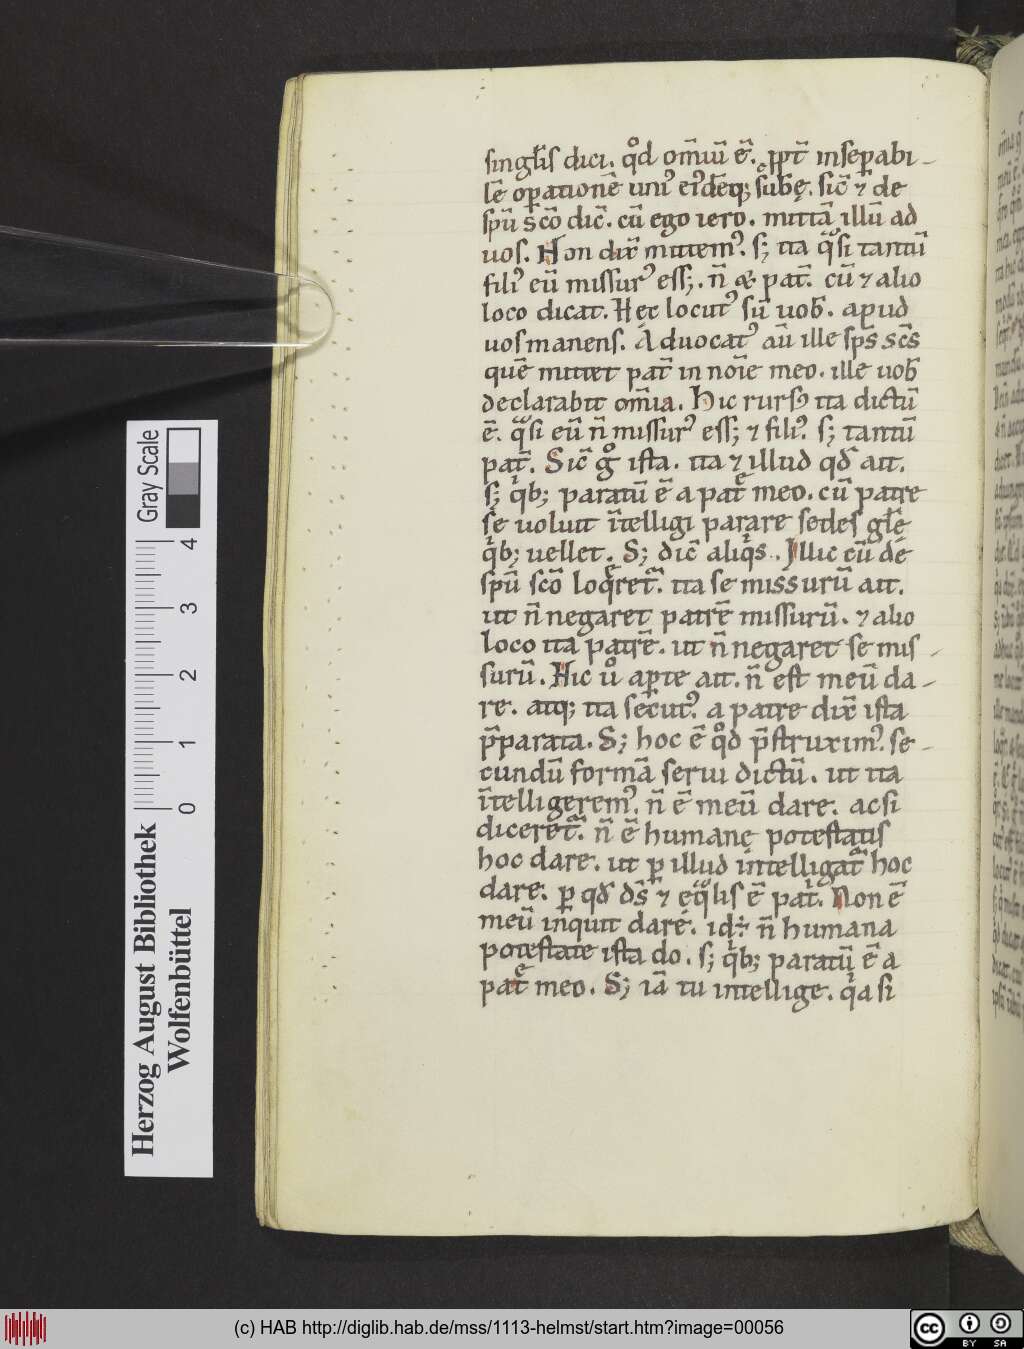 singl̄is dici. qͦd om̄iū ē. ꝓpt̄ insepabi-
lē opationē uniꝰ eiꝰdēq; sub̄ę. sic̄ ⁊ de
sp̄u sc̄o dic̄. cū ego iero. mittā illū ad
uos. Non dix̄ mittemꝰ. s; ita qᷓsi tantū
filiꝰ eū missurꝰ ess;. n̄ & pat̄. cū ⁊ alio
loco dicat. Hec locutꝰ sū uob̄. apud
uos manens. Aduocatꝰ aū ille sp̄s sc̄s
quē mittet pat̄ in noīe meo. ille uob̄
declarabit om̄ia. Hic rursꝰ ita dictū
ē. qᷓsi eū n̄ missurꝰ ess; ⁊ filiꝰ. s; tantū
pat̄. Sic̄ gͦ ista. ita ⁊ illud qđ ait.
s; qͥb; paratū ē a pat̄ meo. cū patre
se uoluit īntelligi parare sedes gl̄ę
qͥb; uellet. S; dic̄ aliqͥs. Illic cū de
sp̄u sc̄o loq̄retᷓ. ita se missurū ait.
ut n̄ negaret patrē missurū. ⁊ alio
loco ita patrē. ut n̄ negaret se mis-
surū. Hic uͦ apte ait. n̄ est meū da-
re. atq; ita secutꝰ. a patre dix̄ ista
p̄parata. S; hoc ē qͦd p̄struximꝰ. se-
cundū formā serui dictū. ut ita
ītelligeremꝰ. n̄ ē meū dare. acsi
diceretᷓ. n̄ ē humanę potestatis
hoc dare. ut ꝑ illud intelligatᷓ hoc
dare. ꝑ qđ ds̄ ⁊ ęqᷓlis ē pat̄. Non ē
meū inquit dare. id.᷎ n̄ humana
potestate ista do. s; qͥb; paratū ē a
pat̄ meo. S; iā tu intellige. qͥa si
Gray Scale
4
3
2
1
0
Herzog August Bibliothek
Wolfenbüttel
(c) HAB http://diglib.hab.de/mss/1113-helmst/start.htm?image=00056
cc
BY SA